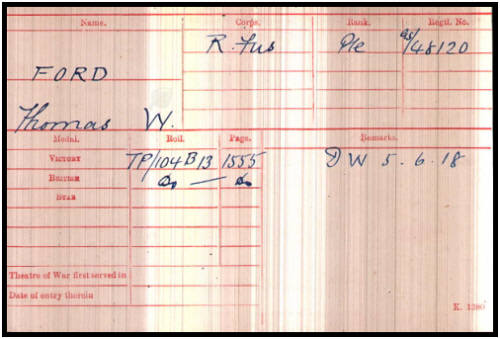 Name. Corps. Rank. Regtl. No.
R. Fus Pte GS/48120
FORD
Thomas W.
Medal. Roll. Page. Remarks.
VICTORY TP/104 B 13 1555 D W 5.6.18
BRITISH do — do
STAR
Theatre of War first served in
Date of entry therein
K. 1380